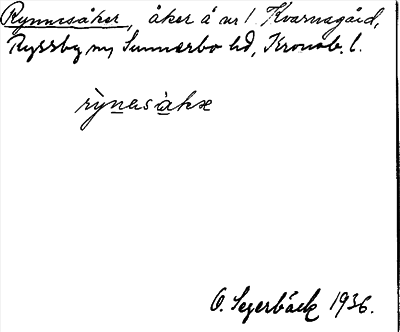 Rynnesåker, åker å nr 1 Kvarnagård,
Ryssby sn, Sunnerbo hd, Kronob. l.
rỳnesàkæ
O. Segerbäck 1936.